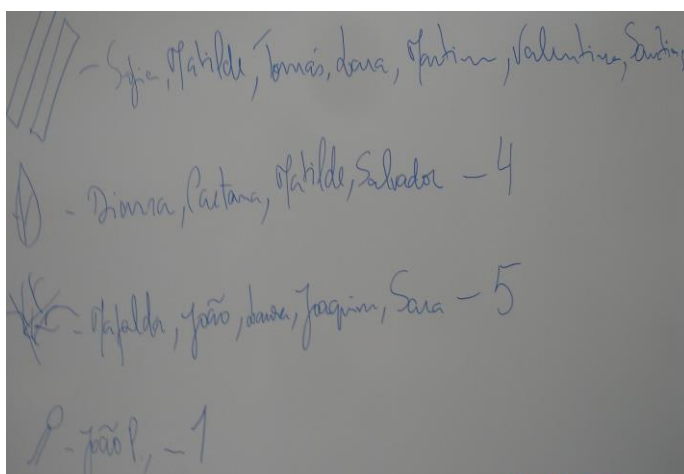 - Sofia, Matilde, Tomás, Lara, Martim, Valentina, Santi
- Dinora, Caetana, Matilde, Salvador - 4
- Mafalda, João, Laura, Joaquim, Sara - 5
- João P. - 1